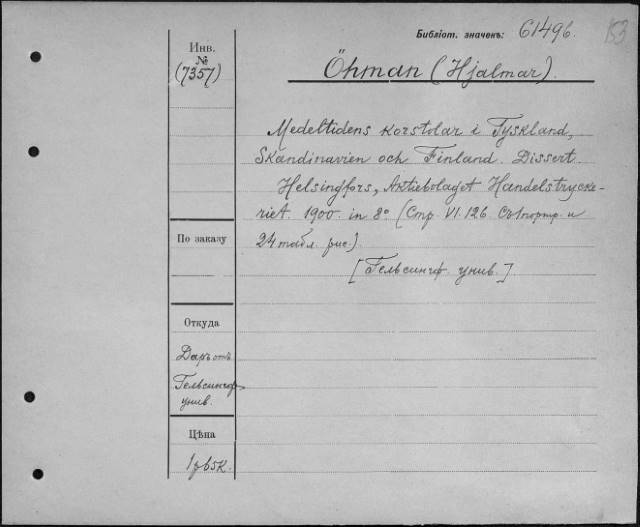 Библіот. значекъ: 61496.
153
Инв.
№
(7357)
Öhman (Hjalmar).
Medeltidens korstolar i Tyskland,
Skandinavien och Finland. Dissert.
Helsingfors, Aktiebolaget Handelstrycke-
riet. 1900. in 8° (Стр. VI. 126. Съ портр. и
24 табл. рис.)
[Гельсингф. унив.]
По заказу
Откуда
Даръ отъ
Гельсингф.
унив.
Цѣна
1р 65к.